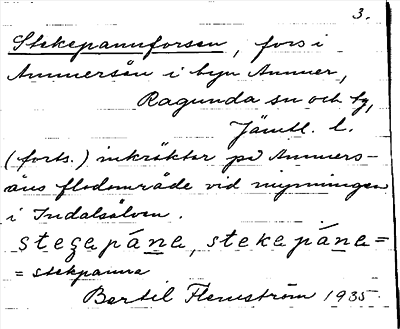 3.
Stekepannforsen, fors i
Ammerån i byn Ammer,
Ragunda sn och tg,
Jämtl. l.
(forts.) inkräktar på Ammers-
åns flodområde vid mynningen
i Indalsälven.
stegepána, stekepána =
= stekpanna
Bertil Flemström 1935.